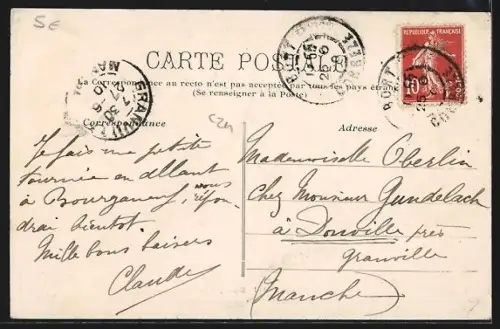 5€
CARTE POSTALE
La Correspondance au recto n'est pas acceptée par tous les pays étrangers
(Se renseigner à la Poste)
Correspondance
Adresse
RÉPUBLIQUE FRANÇAISE
10
GRANVILLE
BORT
CORRÈZE
Je fais une petite
tournée en allant
à Bourganeuf, vous répon-
drai bientôt.
Mille bons baisers
Claude
Mademoiselle Oberlin
Chez Monsieur Gundelach
à Donville près
Granville
Manche